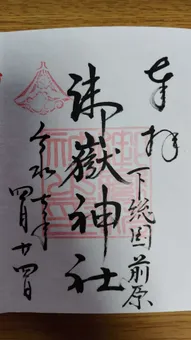 奉拝
下総国前原
御嶽神社
令和六年
四月廿四日